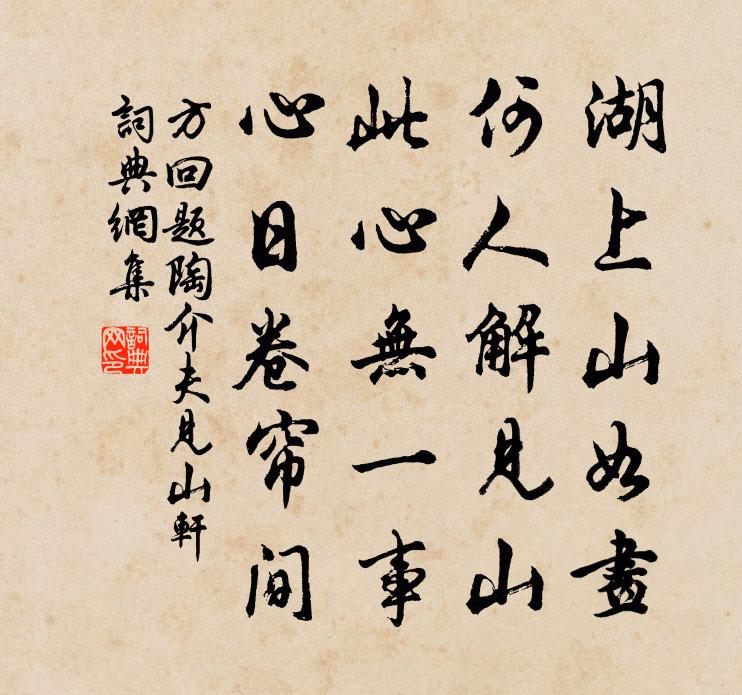 湖上山如畫
何人解見山
此心無一事
心日卷帘间
方回題陶介夫見山軒
詞典網集
詞典网印